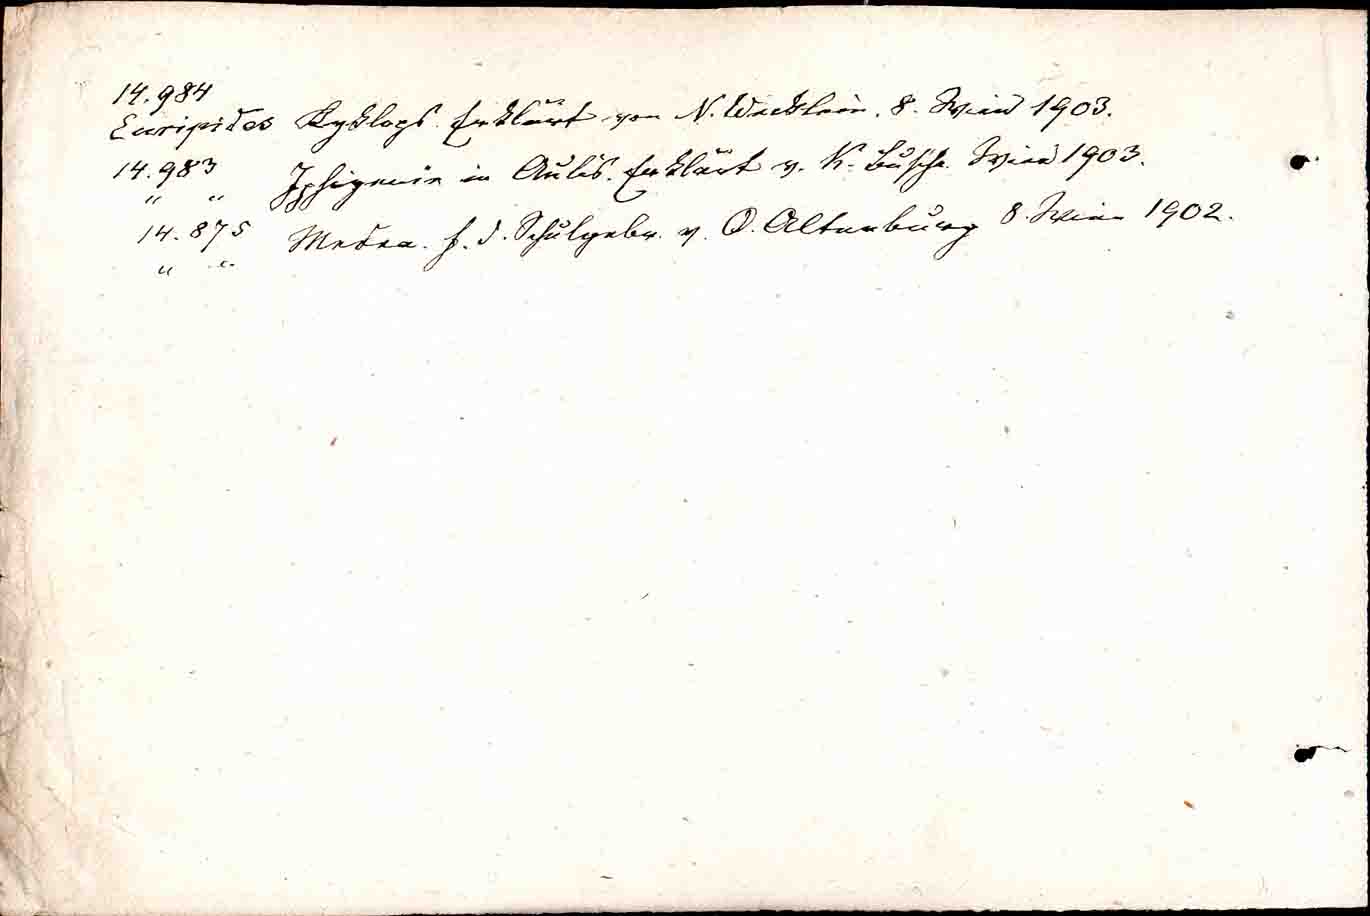 14.984
Euripides Kyklops. Erklärt von N. Wecklein. 8. Wien 1903.
14.983 Iphigenie in Aulis. Erklärt v. K. Busche. Wien 1903.
" "
14.875 Medea. f. d. Schulgebr. v. O. Altenburg 8. Wien 1902.
" "